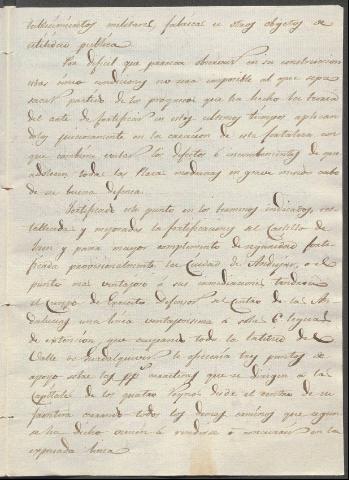 tablecimientos militares, fabrica u otros objetos de
utilidad publica.
Por dificil que parezca obserbar en su construccion
estas cinco condiciones no sera imposible al que sepa
sacar partido de los progresos que ha hecho la teoria
del arte de fortificar en estos ultimos tiempos aplican
dolos juiciosamente en la creacion de esta fortaleza con
que conviene evitar los defectos é incumbenientes de que
adolecen todas las Plazas modernas en grave menos cabo
de su buena defensa.
Fortificado este punto en los terminos indicados, res
tablecidas y mejoradas las fortificaciones del Castillo de
Jaen y para mayor complemento de seguridad forti
ficada provisionalmente la Ciudad de Andujar, o el
punto mas ventajoso á sus inmediaciones tendera
el Cuerpo de Egercito defensor del Cuatro de las An
dalucias una linea ventajosisima á solas 6 leguas
de extension, que ocupando toda la latitud del
Valle de Guadalquivir le ofreceria tres puntos de
apoyo sobre los pp.s caminos que se dirigen a las
Capitales de los cuatro Reynos desde el centro de su
frontera cerrando todos los demas caminos que segun
se ha dicho venian á rendirse ó concurrir en la
expresada linea.